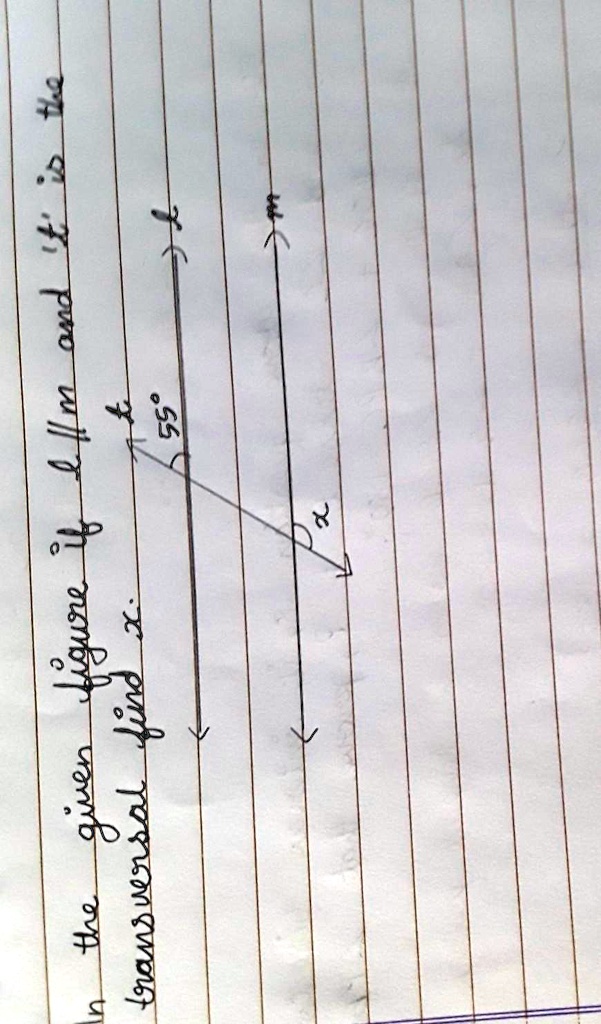 In the given figure if l || m and 't' is the
transversal find x.
t
55°
l
m
x